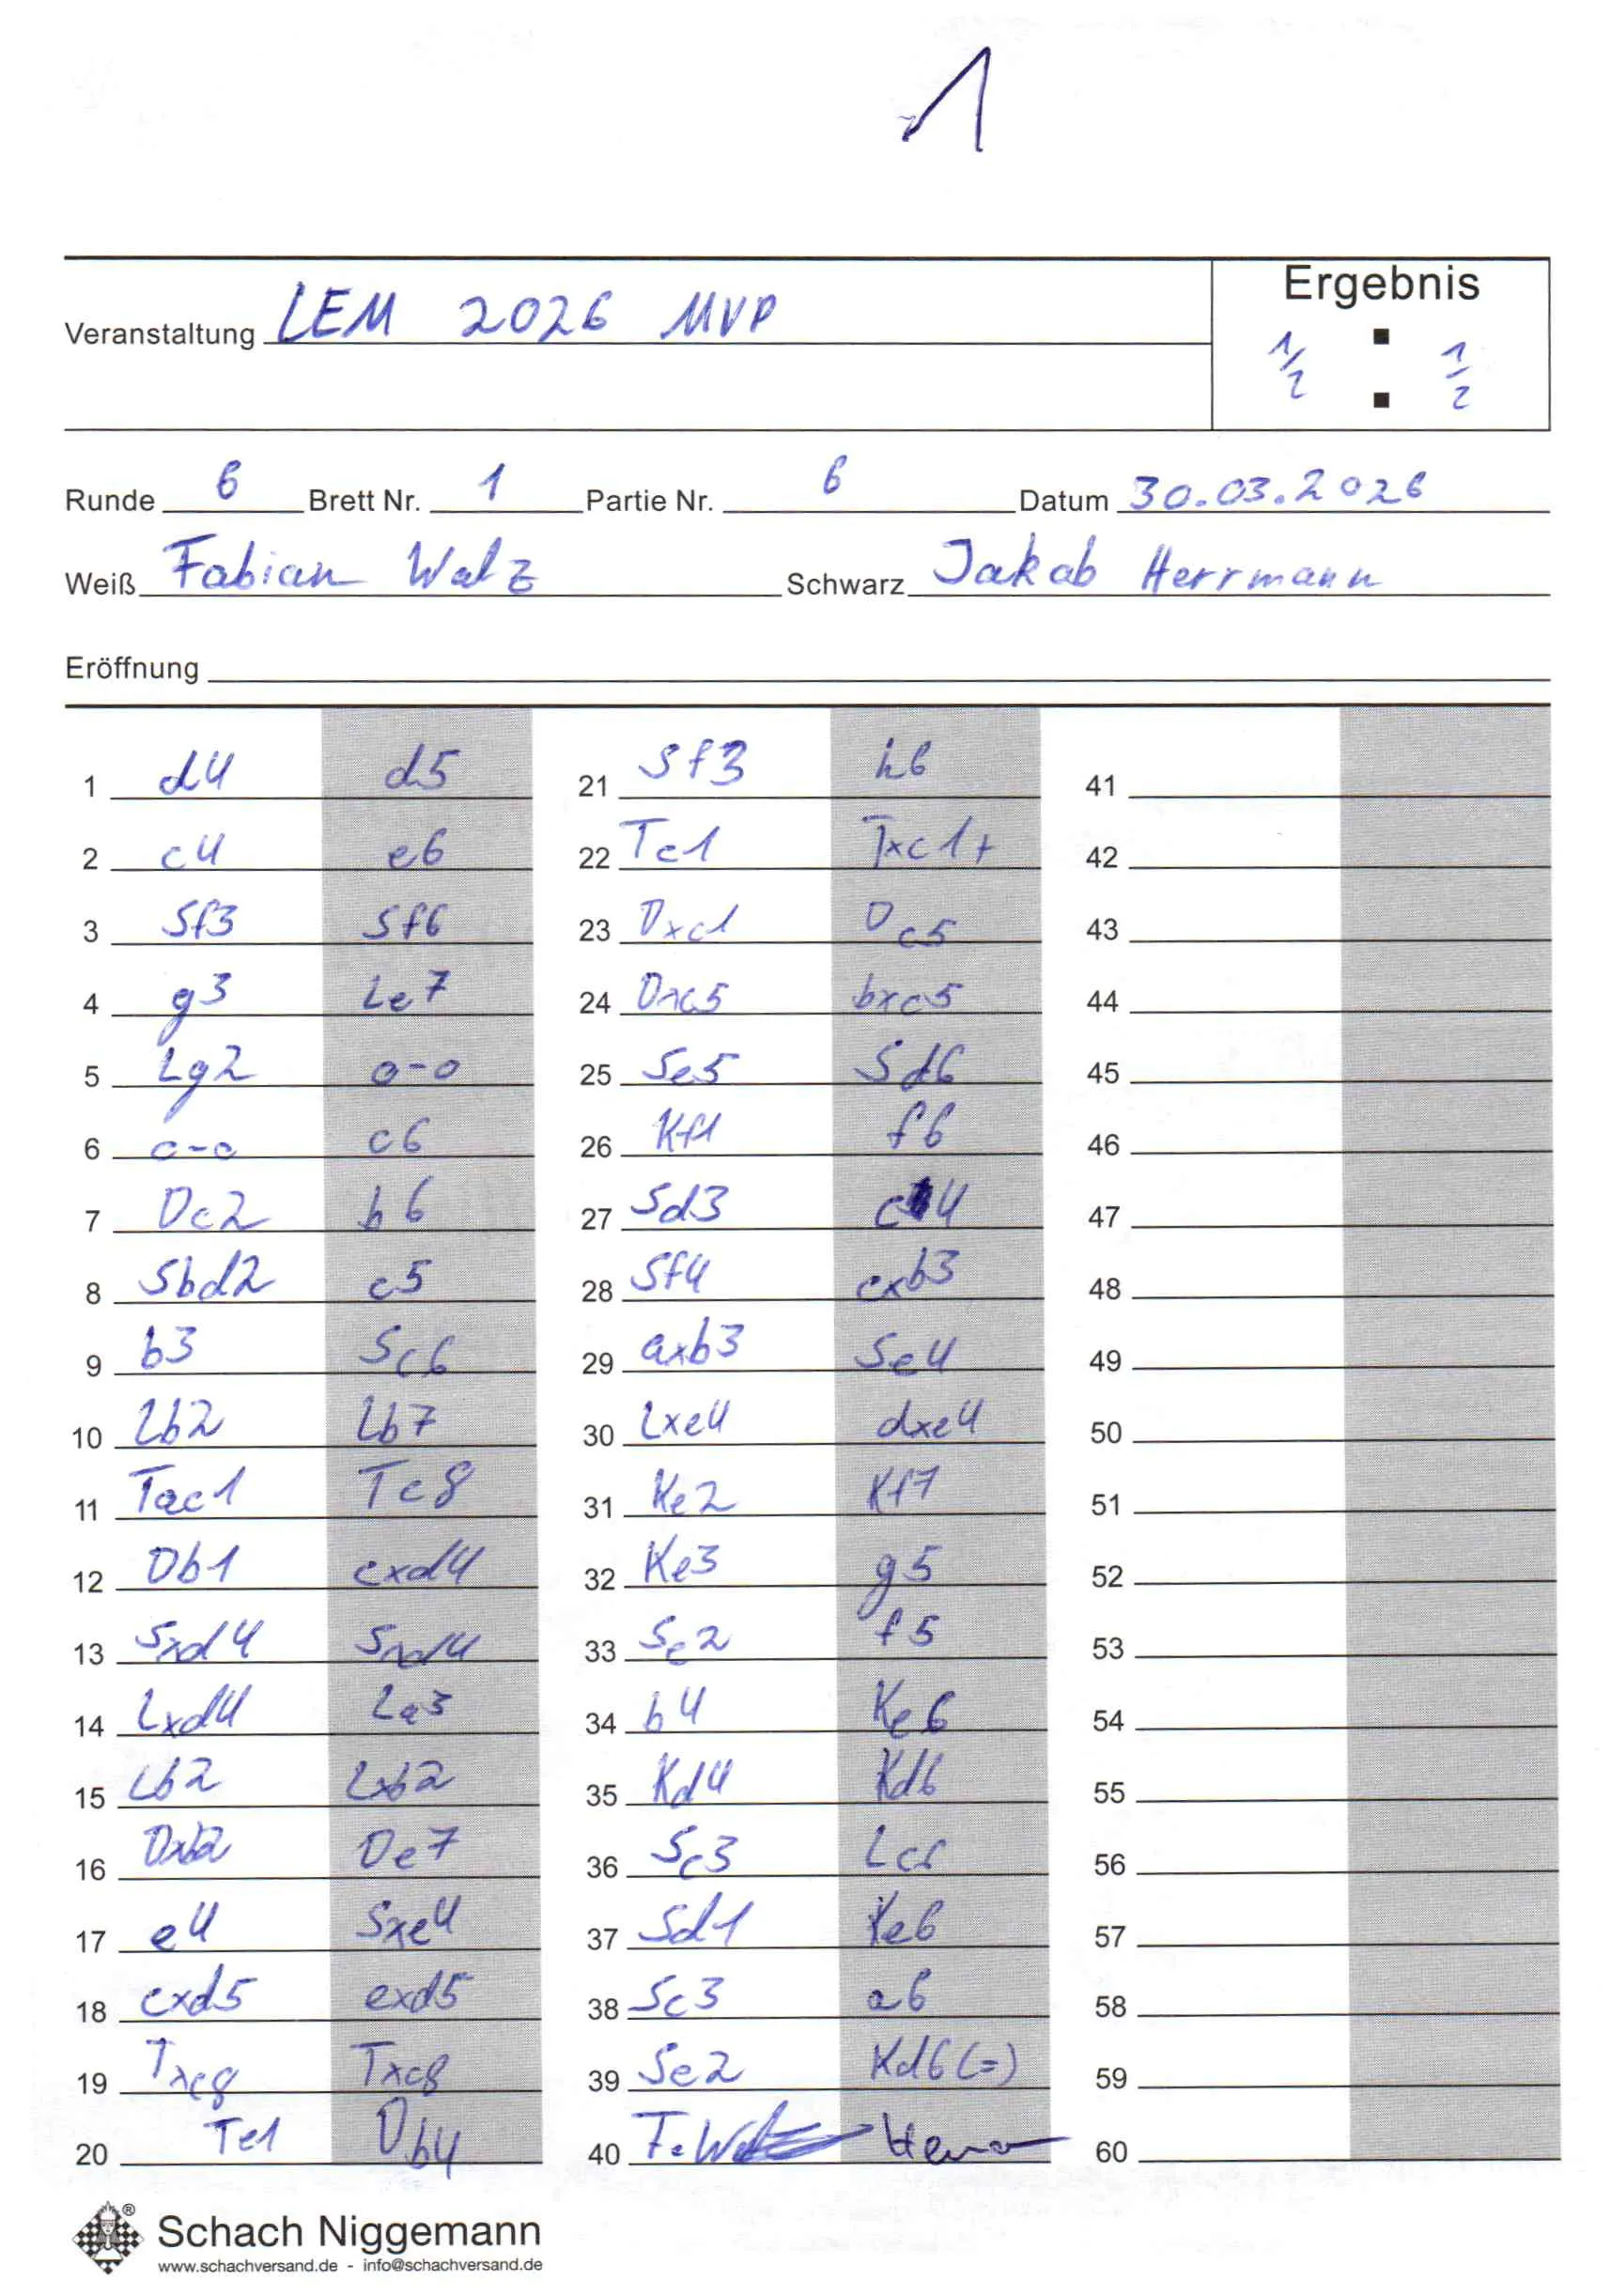 1
Ergebnis
Veranstaltung LEM 2026 MVP
1/2 : 1/2
Runde 6 Brett Nr. 1 Partie Nr. 6 Datum 30.03.2026
Weiß Fabian Walz Schwarz Jakob Herrmann
Eröffnung
1 d4 d5 21 Sf3 h6 41
2 c4 e6 22 Tc1 Txc1+ 42
3 Sf3 Sf6 23 Dxc1 Dc5 43
4 g3 Le7 24 Dxc5 bxc5 44
5 Lg2 0-0 25 Se5 Sd6 45
6 0-0 c6 26 Kf1 f6 46
7 Dc2 b6 27 Sd3 c4 47
8 Sbd2 c5 28 Sf4 cxb3 48
9 b3 Sc6 29 axb3 Se4 49
10 Lb2 Lb7 30 Lxe4 dxe4 50
11 Tac1 Tc8 31 Ke2 Kf7 51
12 Db1 cxd4 32 Ke3 g5 52
13 Sxd4 Sxd4 33 Se2 f5 53
14 Lxd4 La3 34 b4 Ke6 54
15 Lb2 Lxb2 35 Kd4 Kd6 55
16 Dxb2 De7 36 Sc3 Lc6 56
17 e4 Sxe4 37 Sd1 Ke6 57
18 cxd5 exd5 38 Sc3 a6 58
19 Txc8 Txc8 39 Se2 Kd6 (=) 59
20 Te1 Db4 40 F. Walz 60
Schach Niggemann
www.schachversand.de - info@schachversand.de